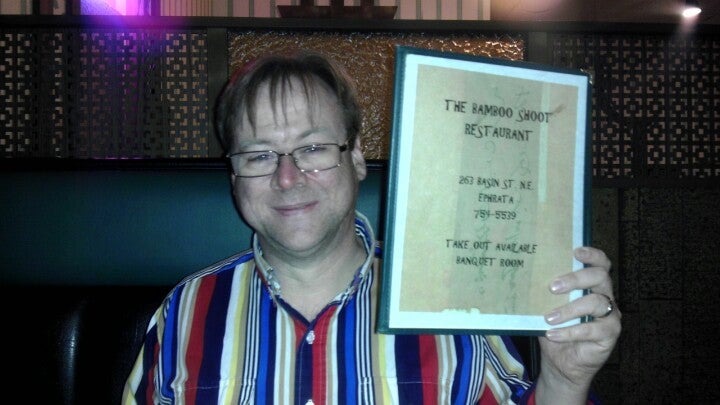 THE BAMBOO SHOOT
RESTAURANT
263 BASIN ST. N.E.
EPHRATA
754-5539
TAKE OUT AVAILABLE
BANQUET ROOM